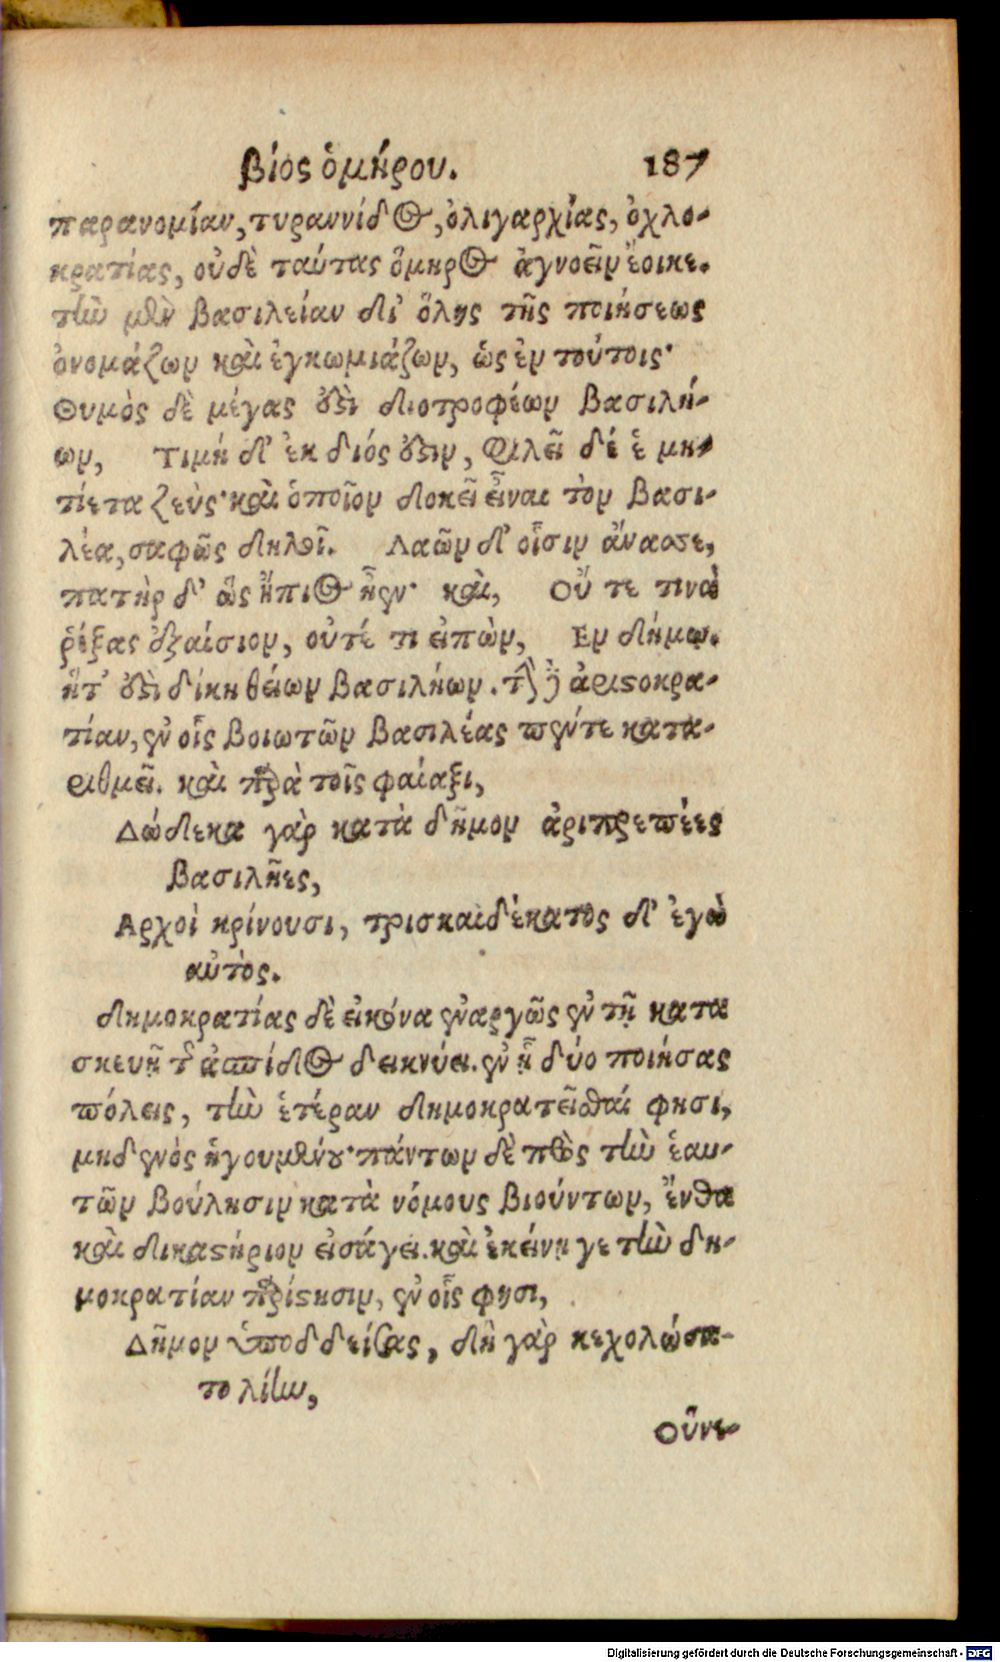 βίος ὁμήρου. 187
παρανομίαν, τυραννίδος, ὀλιγαρχίας, ὀχλο-
κρατίας, οὐδὲ ταύτας ὅμηρος ἀγνοεῖν ἔοικε.
τὴν μὲν βασιλείαν δι' ὅλης τῆς ποιήσεως
ὀνομάζων καὶ ἐγκωμιάζων, ὡς ἐν τούτοις·
Θυμὸς δὲ μέγας ἐστὶ διοτροφέων βασιλή-
ων, Τιμή δ' ἐκ διός ἐστιν, φιλεῖ δέ ἑ μη-
τίετα ζεύς· καὶ ὁποῖον δοκεῖ εἶναι τὸν βασι-
λέα, σαφῶς δηλοῖ. Λαῶν δ' οἷσιν ἄνασσε,
πατὴρ δ' ὣς ἤπιος ἦεν· καὶ, Οὔ τε τινὰ
ῥέξας ἐξαίσιον, οὐτέ τι εἰπὼν, Εν δήμῳ.
ἥτ' ἐστὶ δίκη θείων βασιλήων. τὴν δὲ ἀριστοκρα-
τίαν, ἐν οἷς βοιωτῶν βασιλέας πέντε κατα-
ριθμεῖ. καὶ παρὰ τοῖς φαίαξι,
Δώδεκα γὰρ κατὰ δῆμον ἀριπρεπέες
βασιλῆες,
Αρχοὶ κρίνουσι, τρισκαιδέκατος δ' ἐγὼ
αὐτὸς.
δημοκρατίας δὲ εἰκόνα ἐναργῶς ἐν τῇ κατα
σκευῇ τῆς ἀσπίδος δεικνύει. ἐν ᾗ δύο ποιήσας
πόλεις, τὴν ἑτέραν δημοκρατεῖσθαί φησι,
μηδενὸς ἡγουμένου· πάντων δὲ πρὸς τὴν ἑαυ-
τῶν βούλησιν κατὰ νόμους βιούντων, ἔνθα
καὶ δικαστήριον εἰσάγει. καὶ ἐκείνῃ γε τὴν δη-
μοκρατίαν παρίστησιν, ἐν οἷς φησι,
Δῆμον ὑποδδείσας, δὴ γὰρ κεχολώσα-
το λίην,
Οὕνε-
Digitalisierung gefördert durch die Deutsche Forschungsgemeinschaft - DFG